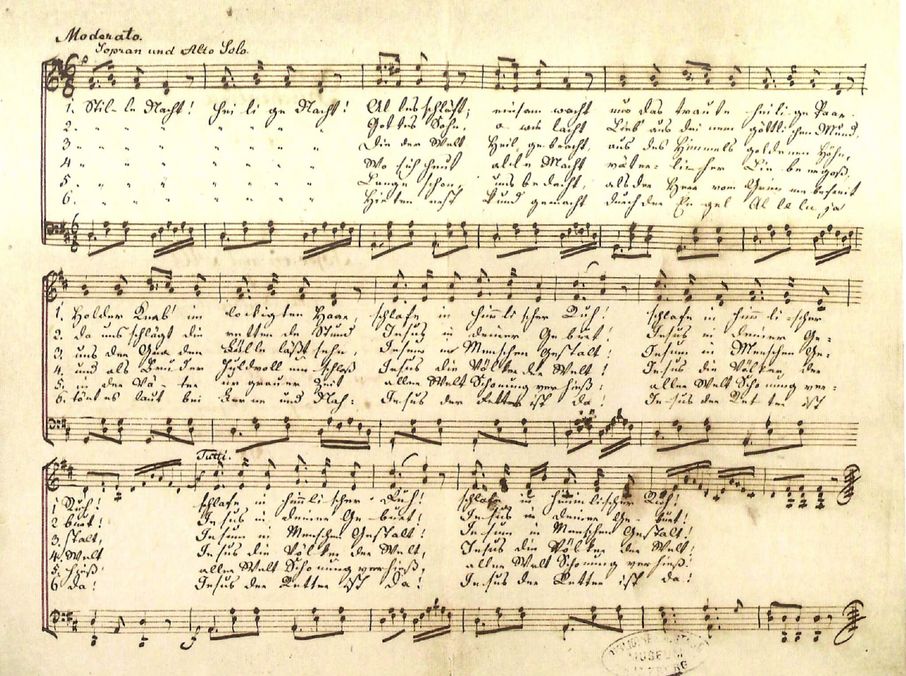 Moderato.
Sopran und Alto Solo.
1. Stil-le Nacht! hei li ge Nacht! Al les schläft; einsam wacht nur das traute hei li ge Paar.
2. " " " " " " Gottes Sohn, o wie lacht Lieb' aus dei nem göttlichen Mund,
3. " " " " " " Die der Welt Heil gebracht, aus des Himmels goldenen Höhn,
4. " " " " " " Wo sich heut al le Macht väter-li-cher Lie be ergoß,
5. " " " " " " Lange schon uns bedacht, als der Herr vom Grim me befreit
6. " " " " " " Hirten erst kund gemacht durch der En-gel Al le lu ja
1. Holder Knab' im lockigten Haar, schlafe in himmli scher Ruh! schlafe in himm-li-scher
2. da uns schlägt die retten de Stund Jesus in deiner Ge burt! Jesus in deiner Ge-
3. uns der Gna den Fülle läßt sehn, Jesum in Menschen Gestalt! Jesum in Menschen Ge-
4. und als Bru der huldvoll umschloß Jesus die Völker der Welt! Jesus die Völker der
5. in der Vä-ter ur grauer Zeit aller Welt Schonung verhieß! aller Welt Schonung ver-
6. tönt es laut bei Ferne und Nah: Jesus der Retter ist da! Je-sus der Ret ter ist
Tutti.
1 Ruh! schlafe in himmli scher Ruh! schlafe in himmlischer Ruh!
2 burt! Jesus in deiner Ge-burt! Jesus in deiner Ge-burt!
3. stalt, Jesum in Menschen Gestalt! Jesum in Menschen Gestalt!
4. Welt Jesus die Völker der Welt, Jesus die Völker der Welt!
5. hieß! aller Welt Schonung verhieß, aller Welt Schonung verhieß!
6 da! Jesus der Retter ist da! Jesus der Retter ist da!
MUSEUM